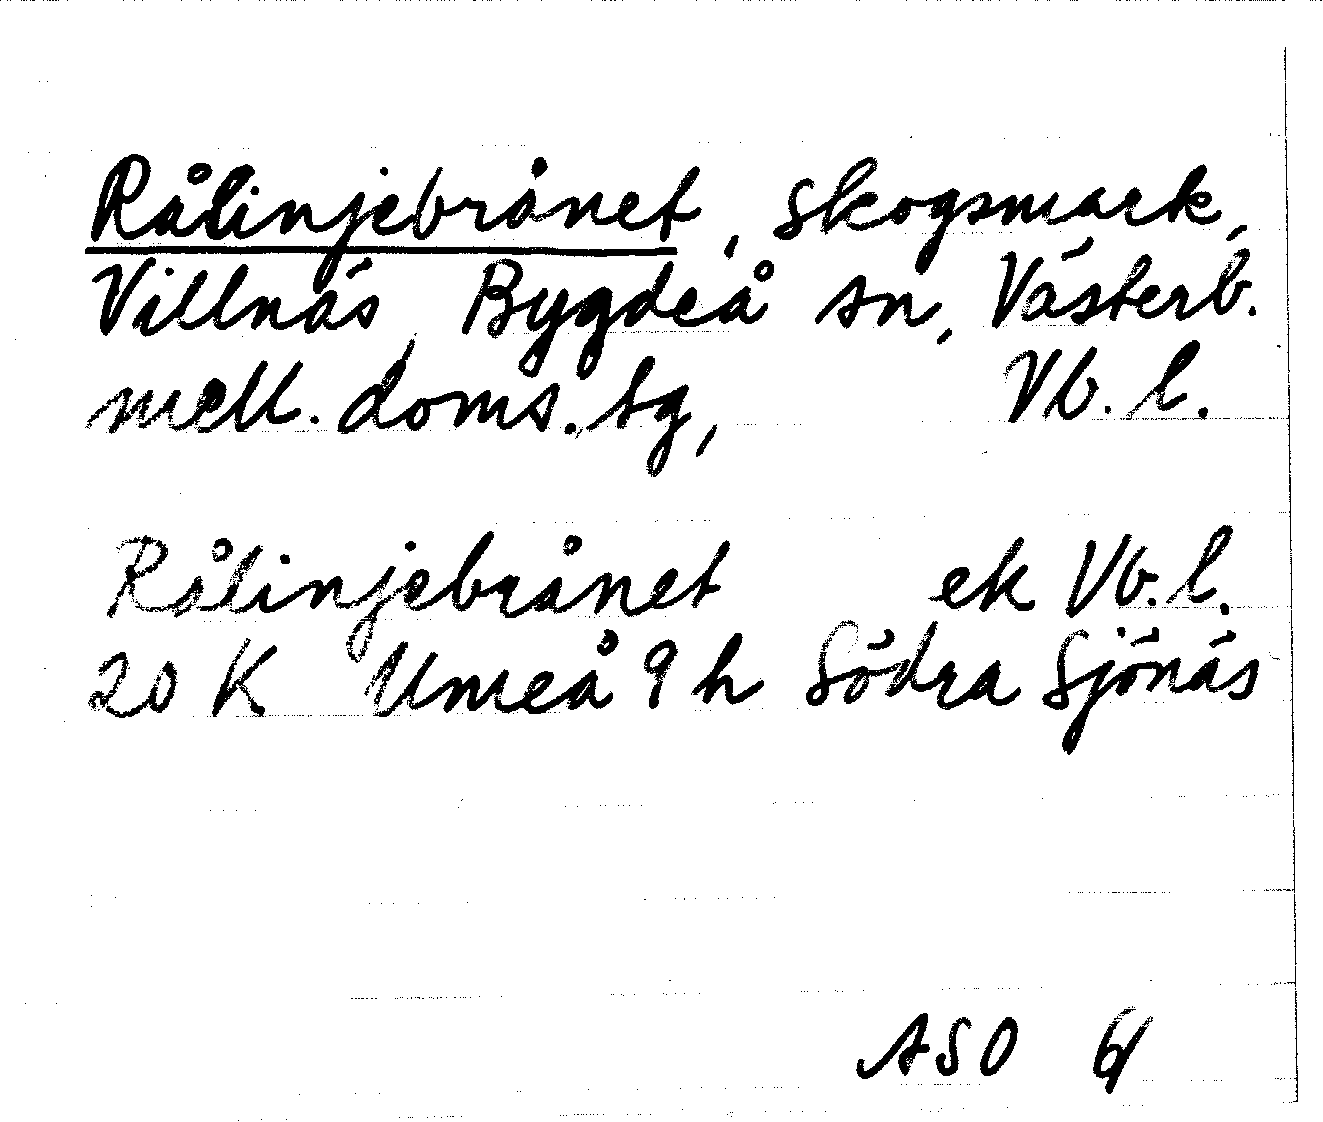 Rålinjebrånet, skogsmark,
Villnäs, Bygdeå sn, Västerb.
mell. doms. sg, Vb. l.
Rålinjebrånet ek Vb. l.
20 K Umeå 9 h Södra Sjönäs
ASO 61